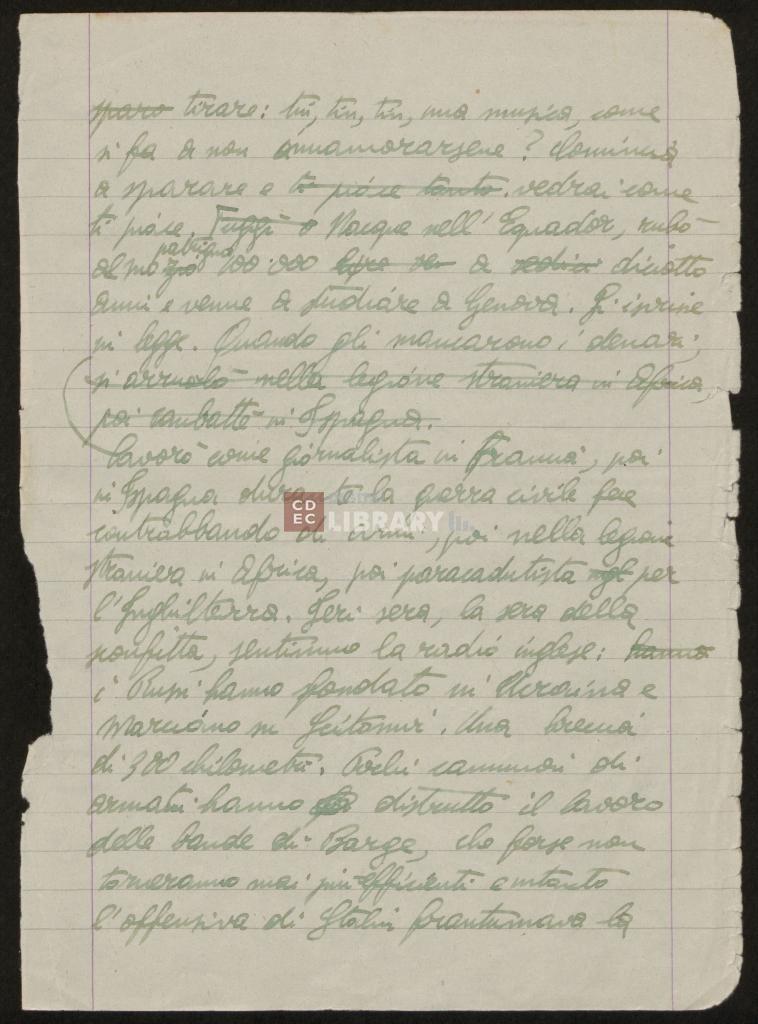 sparo tirare: tin, tin, tin, una musica, come
si fa a non innamorarsene? Comincia
a sparare e ti piace tanto. vedrai come
ti piace. Fuggì o Nacque nell'Equador, rubò
patrigno
al 100.000 lire a sedici diciotto
anni e venne a studiare a Genova. Si iscrisse
in legge. Quando gli mancarono i denari,
si arruolò nella legione straniera in Africa
poi combatté in Spagna.
lavorò come giornalista in Francia, poi
in Spagna durante la guerra civile fece
contrabbando di armi, poi nella legione
straniera in Africa, poi paracadutista per
l'Inghilterra. Ieri sera, la sera della
sconfitta, sentimmo la radio inglese: hanno
i Russi hanno sfondato in Ucraina e
marciano su Gitomir. Una breccia
di 300 chilometri. Pochi camion di
armati hanno distrutto il lavoro
delle bande di Barge, che forse non
torneranno mai più efficienti e intanto
l'offensiva di Stalin frantumava la
CDEC
LIBRARY